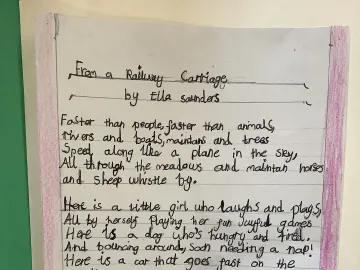 From a Railway Carriage
by Ella Saunders
Faster than people, faster than animals,
Rivers and boats, maintains and trees
Speed along like a plane in the sky,
All through the meadows and maintain horses
and sheep whistle by.
Here is a little girl who laughs and plays,
All by herself playing her fun Joyful games
Here is a dog who's hungry and tired.
And bouncing around, soon needing a nap!
Here is a car that goes fast on the